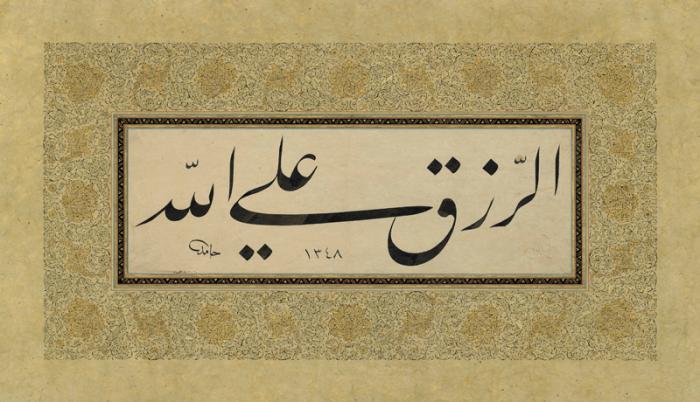 الرّزق علي اللّه
١٣٤٨
حامد